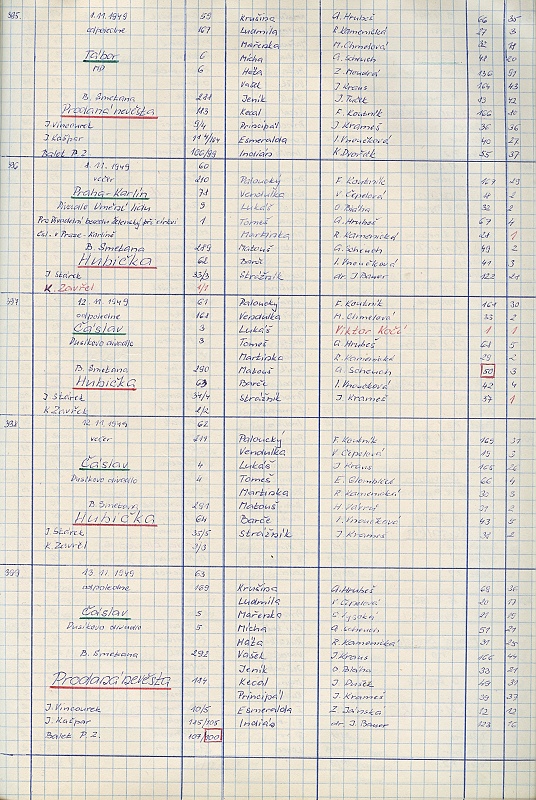 395 1.11.1949 59 Krušina A. Hrubeš 66 35
odpoledne 167 Ludmila R. Kamenická 27 3
Mařenka M. Chmelová 32
Tábor 6 Mícha A. Scheuch 48 20
6 Háta Z. Moudrá 136 51
Vašek J. Kraus 164 43
B. Smetana 291 Jeník J. Pušek 13 42
Prodaná nevěsta 113 Kecal F. Koubník 166 10
J. Vincourek 9/4 Principál J. Krameš 36 36
J. Kašpar Esmeralda I. Vnoučková 40 27
Balet P. Z. 100/99 Indián K. Dvořák 55 37
396 1.11.1949 60
večer 210 Paloucký F. Koubník 167 29
Praha-Karlín 71 Vendulka V. Čepelová 18 2
Divadlo Umění lidu 9 Lukáš O. Bláha 32 2
1 Tomeš A. Hrubeš 67 4
čsl. v Praze-Karlíně Martinka R. Kamenická 28 1
B. Smetana 289 Matouš A. Scheuch 49 2
Hubička 62 Barče I. Vnoučková 41 3
J. Stárek 33/3 Strážník dr. J. Bauer 122 21
K. Zavřel 1/1
397 12.11.1949 61 Paloucký F. Koubník 168 30
odpoledne 168 Vendulka M. Chmelová 33 2
Čáslav 3 Lukáš Viktor Kočí 1 1
Dusíkovo divadlo 3 Tomeš A. Hrubeš 68 5
Martinka R. Kamenická 29 2
B. Smetana 290 Matouš A. Scheuch 50 3
Hubička 63 Barče I. Vnoučková 42 4
J. Stárek 34/4 Strážník J. Krameš 37 1
K. Zavřel 2/2
398 12.11.1949 62
večer 211 Paloucký F. Koubník 169 31
Vendulka V. Čepelová 19 3
Čáslav 4 Lukáš J. Kraus 165 26
Dusíkovo divadlo 4 Tomeš 66 4
Martinka R. Kamenická 30 3
B. Smetana 291 Matouš 31 2
Hubička 64 Barče I. Vnoučková 43 5
J. Stárek 35/5 Strážník J. Krameš 38 2
K. Zavřel 3/3
399 13.11.1949 63
odpoledne 169 Krušina A. Hrubeš 69 36
Ludmila V. Čepelová 20 17
Čáslav 5 Mařenka 21 19
Dusíkovo divadlo 5 Mícha A. Scheuch 51 21
Háta R. Kamenická 31 25
B. Smetana 292 Vašek J. Kraus 166 44
Jeník O. Bláha 33 21
Prodaná nevěsta 114 Kecal J. Pušek 49 39
Principál J. Krameš 39 37
J. Vincourek 10/5 Esmeralda Z. Jánská 12 12
J. Kašpar 115/105 Indián dr. J. Bauer 123 16
Balet P. Z. 107/100